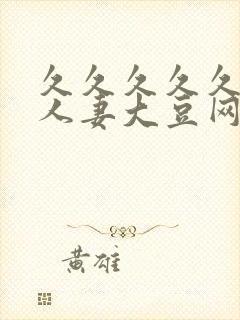 久久久久久
人妻大豆网
黄雄